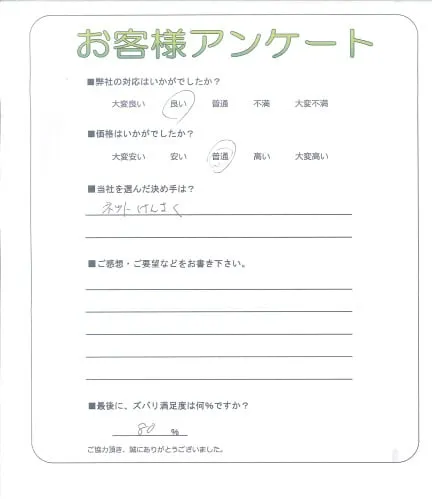 お客様アンケート
■弊社の対応はいかがでしたか？
大変良い 良い 普通 不満 大変不満
■価格はいかがでしたか？
大変安い 安い 普通 高い 大変高い
■当社を選んだ決め手は？
ネットけんさく
■ご感想・ご要望などをお書き下さい。
■最後に、ズバリ満足度は何%ですか？
80 %
ご協力頂き、誠にありがとうございました。